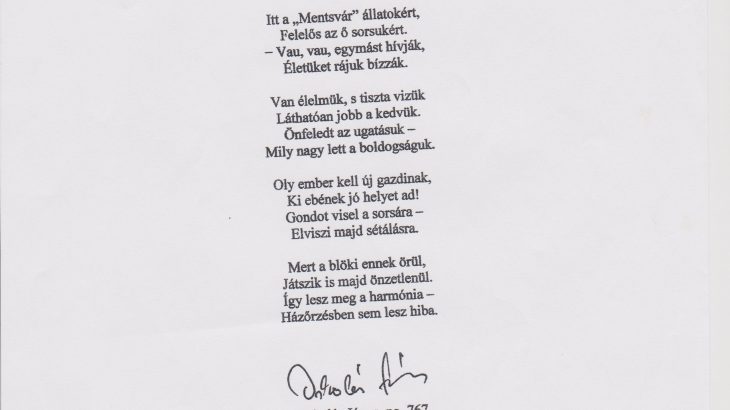 Itt a „Mentsvár” állatokért,
Felelős az ő sorsukért.
– Vau, vau, egymást hívják,
Életüket rájuk bízzák.
Van élelmük, s tiszta vizük
Láthatóan jobb a kedvük.
Önfeledt az ugatásuk –
Mily nagy lett a boldogságuk.
Oly ember kell új gazdinak,
Ki ebének jó helyet ad!
Gondot visel a sorsára –
Elviszi majd sétálásra.
Mert a blöki ennek örül,
Játszik is majd önzetlenül.
Így lesz meg a harmónia –
Házőrzésben sem lesz hiba.